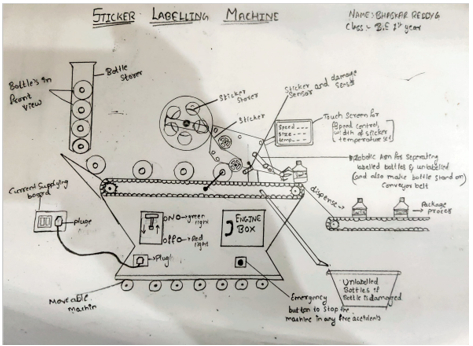 STICKER LABELLING MACHINE
NAME: BHASKAR REDDY G
Class - B.E 1st year
Bottle's in
front
view
Bottle
Storer
Sticker
Storer
Sticker
Sticker and damage
sensor
Touch screen for
Speed control,
width of sticker
temperature set
Speed
Size
temp
Robotic Arm for separating
labelled bottles & unlabelled
(and also make bottle stand on)
Conveyor belt
dispense
Package
process
Current supplying
board
pluge
ON → green
light
OFF → Red
light
ENGINE
BOX
Plug
Moveable
machin
Emergency
button to stop the
machine in any fire accidents
Unlabelled
Bottles if
Bottle is damaged